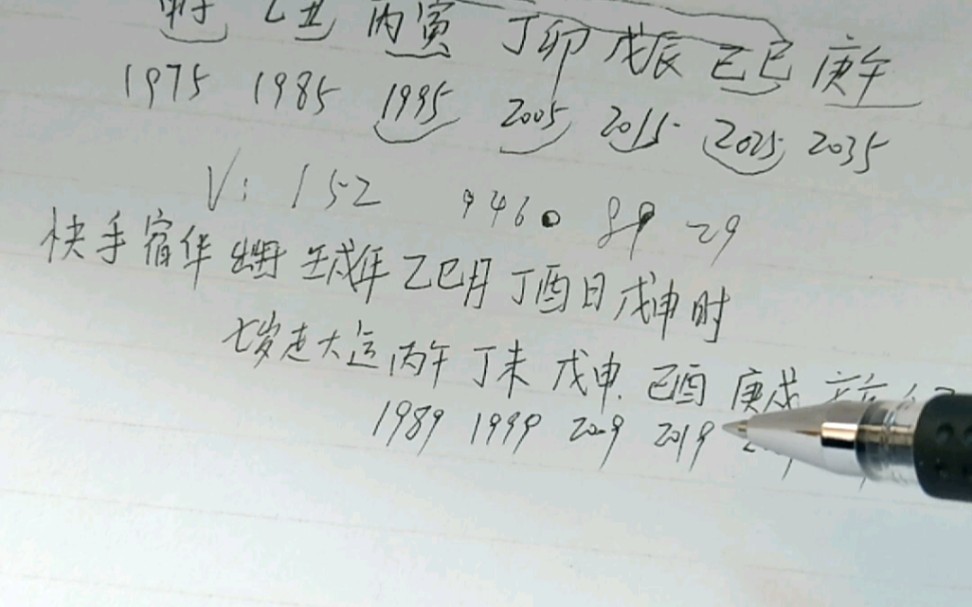 乙丑 丙寅 丁卯 戊辰 己巳 庚午
1975 1985 1995 2005 2015 2025 2035
V: 152 9460 89 29
快手宿华 出生 壬戌年 乙巳月 丁酉日 戊申时
七岁走大运 丙午 丁未 戊申 己酉 庚戌
1989 1999 2009 2019